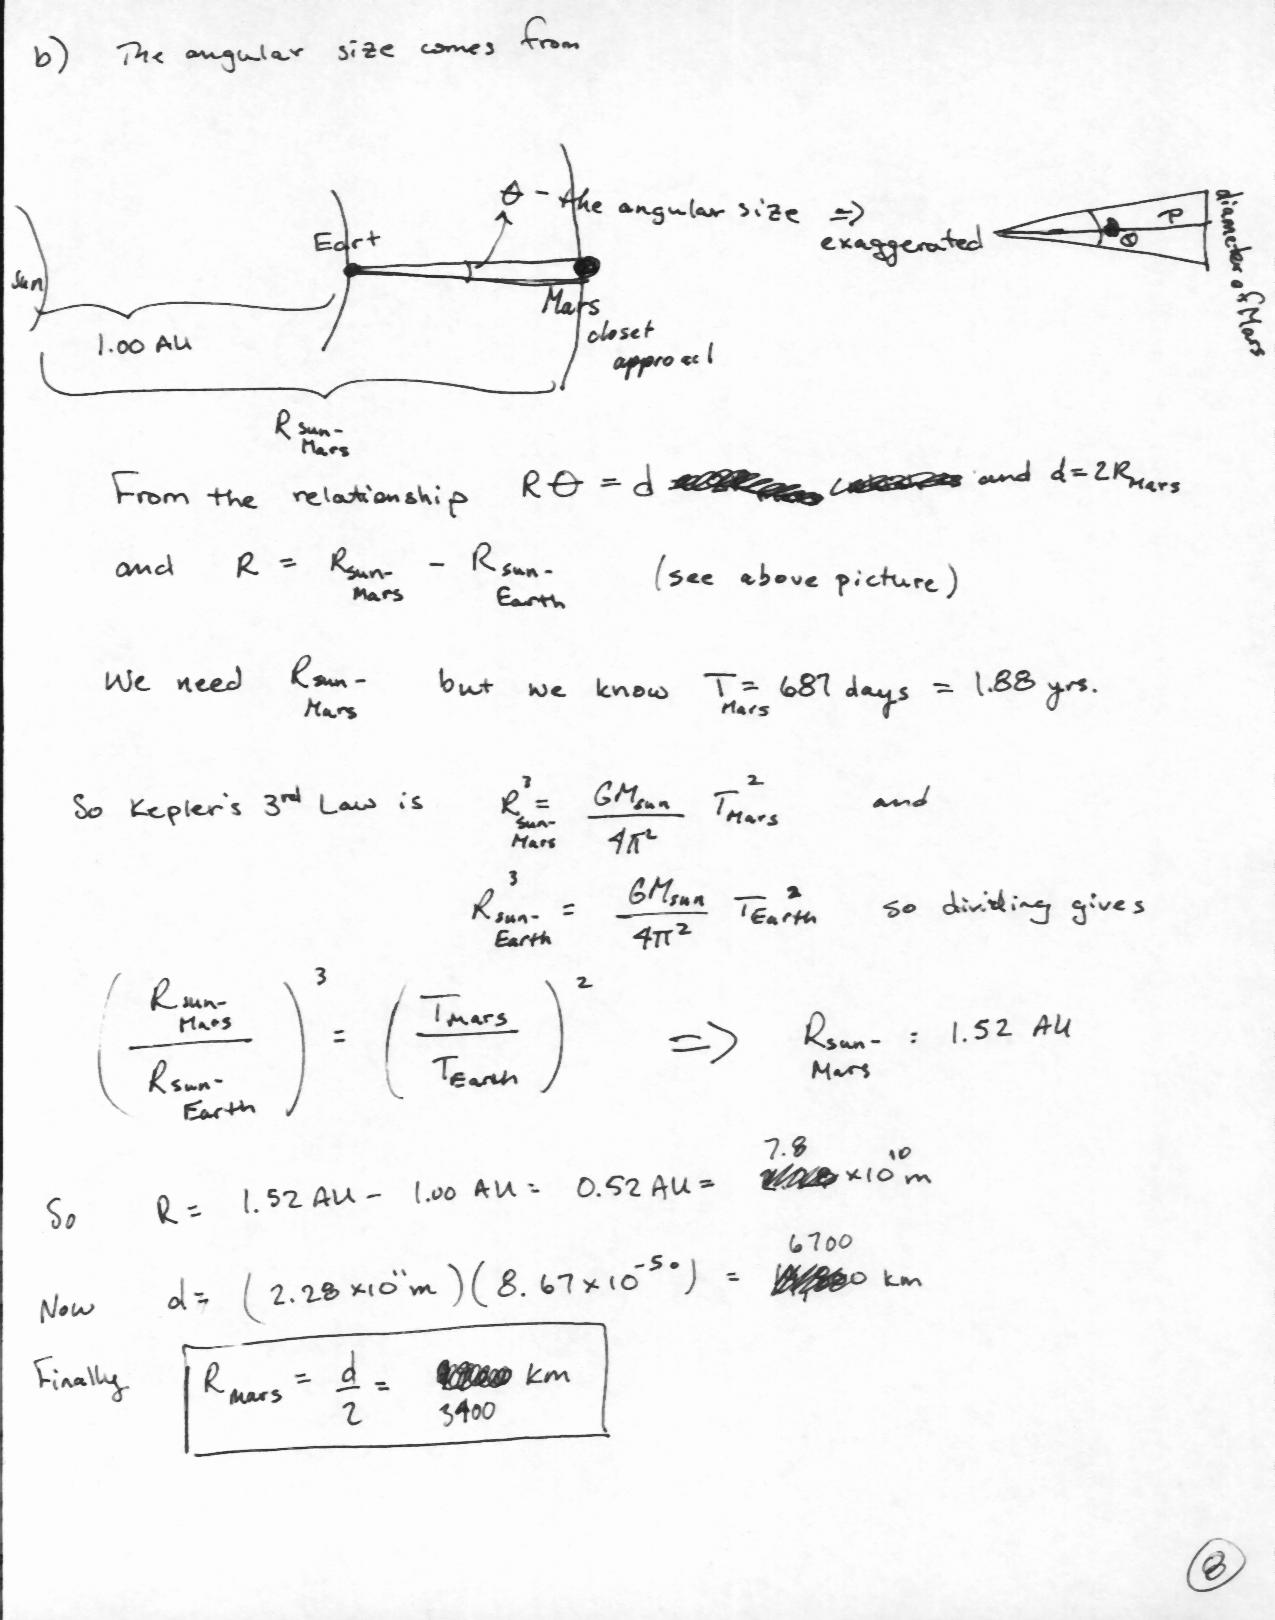 b) The angular size comes from
θ - the angular size ⇒
exaggerated
θ
R
diameter of Mars
Eart
Sun
Mars
closet
approacl
1.00 AU
R sun-Mars
From the relationship Rθ = d and d = 2R Mars
and R = R sun-Mars - R sun-Earth (see above picture)
We need R sun-Mars but we know T Mars = 687 days = 1.88 yrs.
So Kepler's 3rd Law is R³ sun-Mars = GM sun / 4π² T² Mars and
R³ sun-Earth = GM sun / 4π² T² Earth so dividing gives
(R sun-Mars / R sun-Earth)³ = (T Mars / T Earth)² ⇒ R sun-Mars = 1.52 AU
So R = 1.52 AU - 1.00 AU = 0.52 AU = 7.8 ×10¹⁰ m
Now d = (2.28 ×10¹¹ m)(8.67×10⁻⁵°) = 6700 km
Finally R mars = d/2 = 3400 km
8